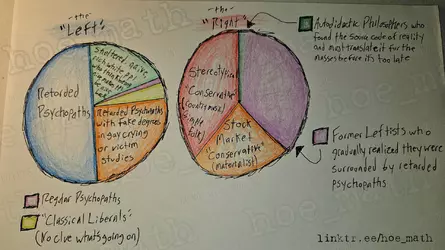 the
"Left"
the
"Right"
Retarded
Psychopaths
Sheltered, naive,
rich white ppl
who think
Retarded Psychopaths
with fake degrees
in gay crying
or victim
studies
Stereotypical
"Conservative"
Stock
Market
"Conservative"
(materialist)
Autodidactic Philosophers who
found the source code of reality
and must translate it for the
masses before it's too late
Former Leftists who
gradually realized they were
surrounded by retarded
psychopaths
Regular Psychopaths
"Classical Liberals"
(No clue what's going on)
linktr.ee/hoe_math